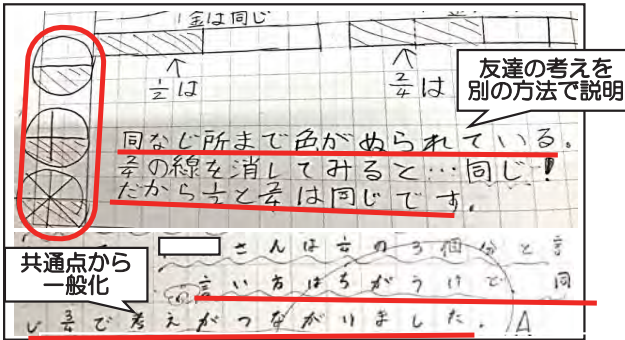 金は同じ
1/2は
2/4は
友達の考えを
別の方法で説明
同なじ所まで色がぬられている。
2/4の線を消してみると…同じ!
だから1/2と2/4は同じです。
共通点から
一般化
さんは1/4の3個分と
言い方はちがうけど 同
じ 3/4で考えがつながりました。 A